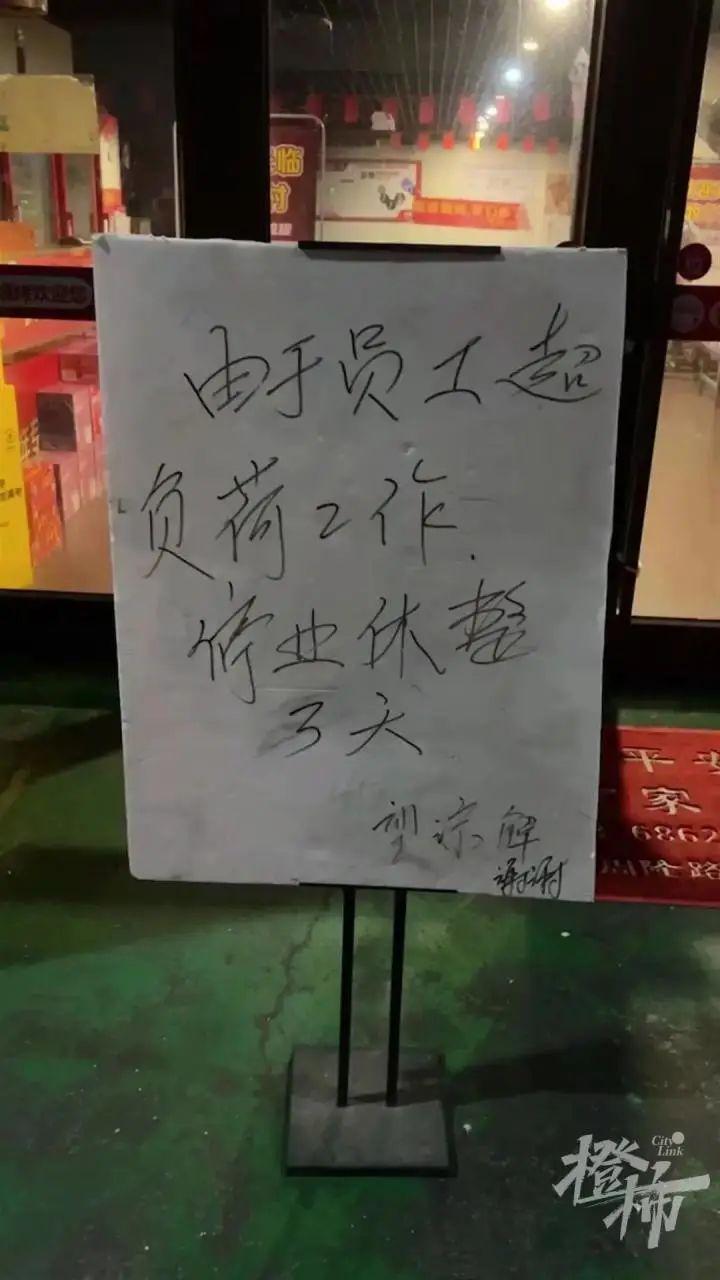 由于员工超
负荷工作.
停业休整
3天
望谅解
谢谢
临
欢迎您
平安
家
6862
路
City
Link
橙柿